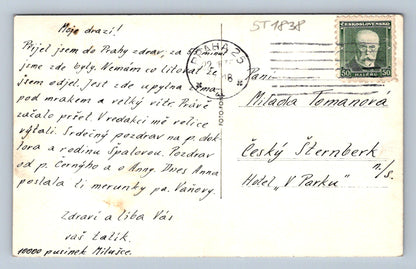 Moje drazí!
Přijel jsem do Prahy zdráv, za
jsme zde byly. Nemám co litovat že
jsem odjel. Jest zde úpylna
pod mrakem a velký vítr. Právě
začalo pršet. V redakci mě velice
výtali. Srdečný pozdrav na p. dok-
tora a rodinu Špalovou. Pozdrav
od p. Černýho a o Anny. Dnes Anna
poslala ti meruňky pa. Váňovy.
Zdraví a líbá Vás
váš Latík.
10000 pusinek Milušce.
ST1838
PRAHA 25
ČESKOSLOVENSKO
50 50
HALÉŘŮ
Paní
Miladka Tomanová
Český Šternberk
n/S.
Hotel „V Parku"